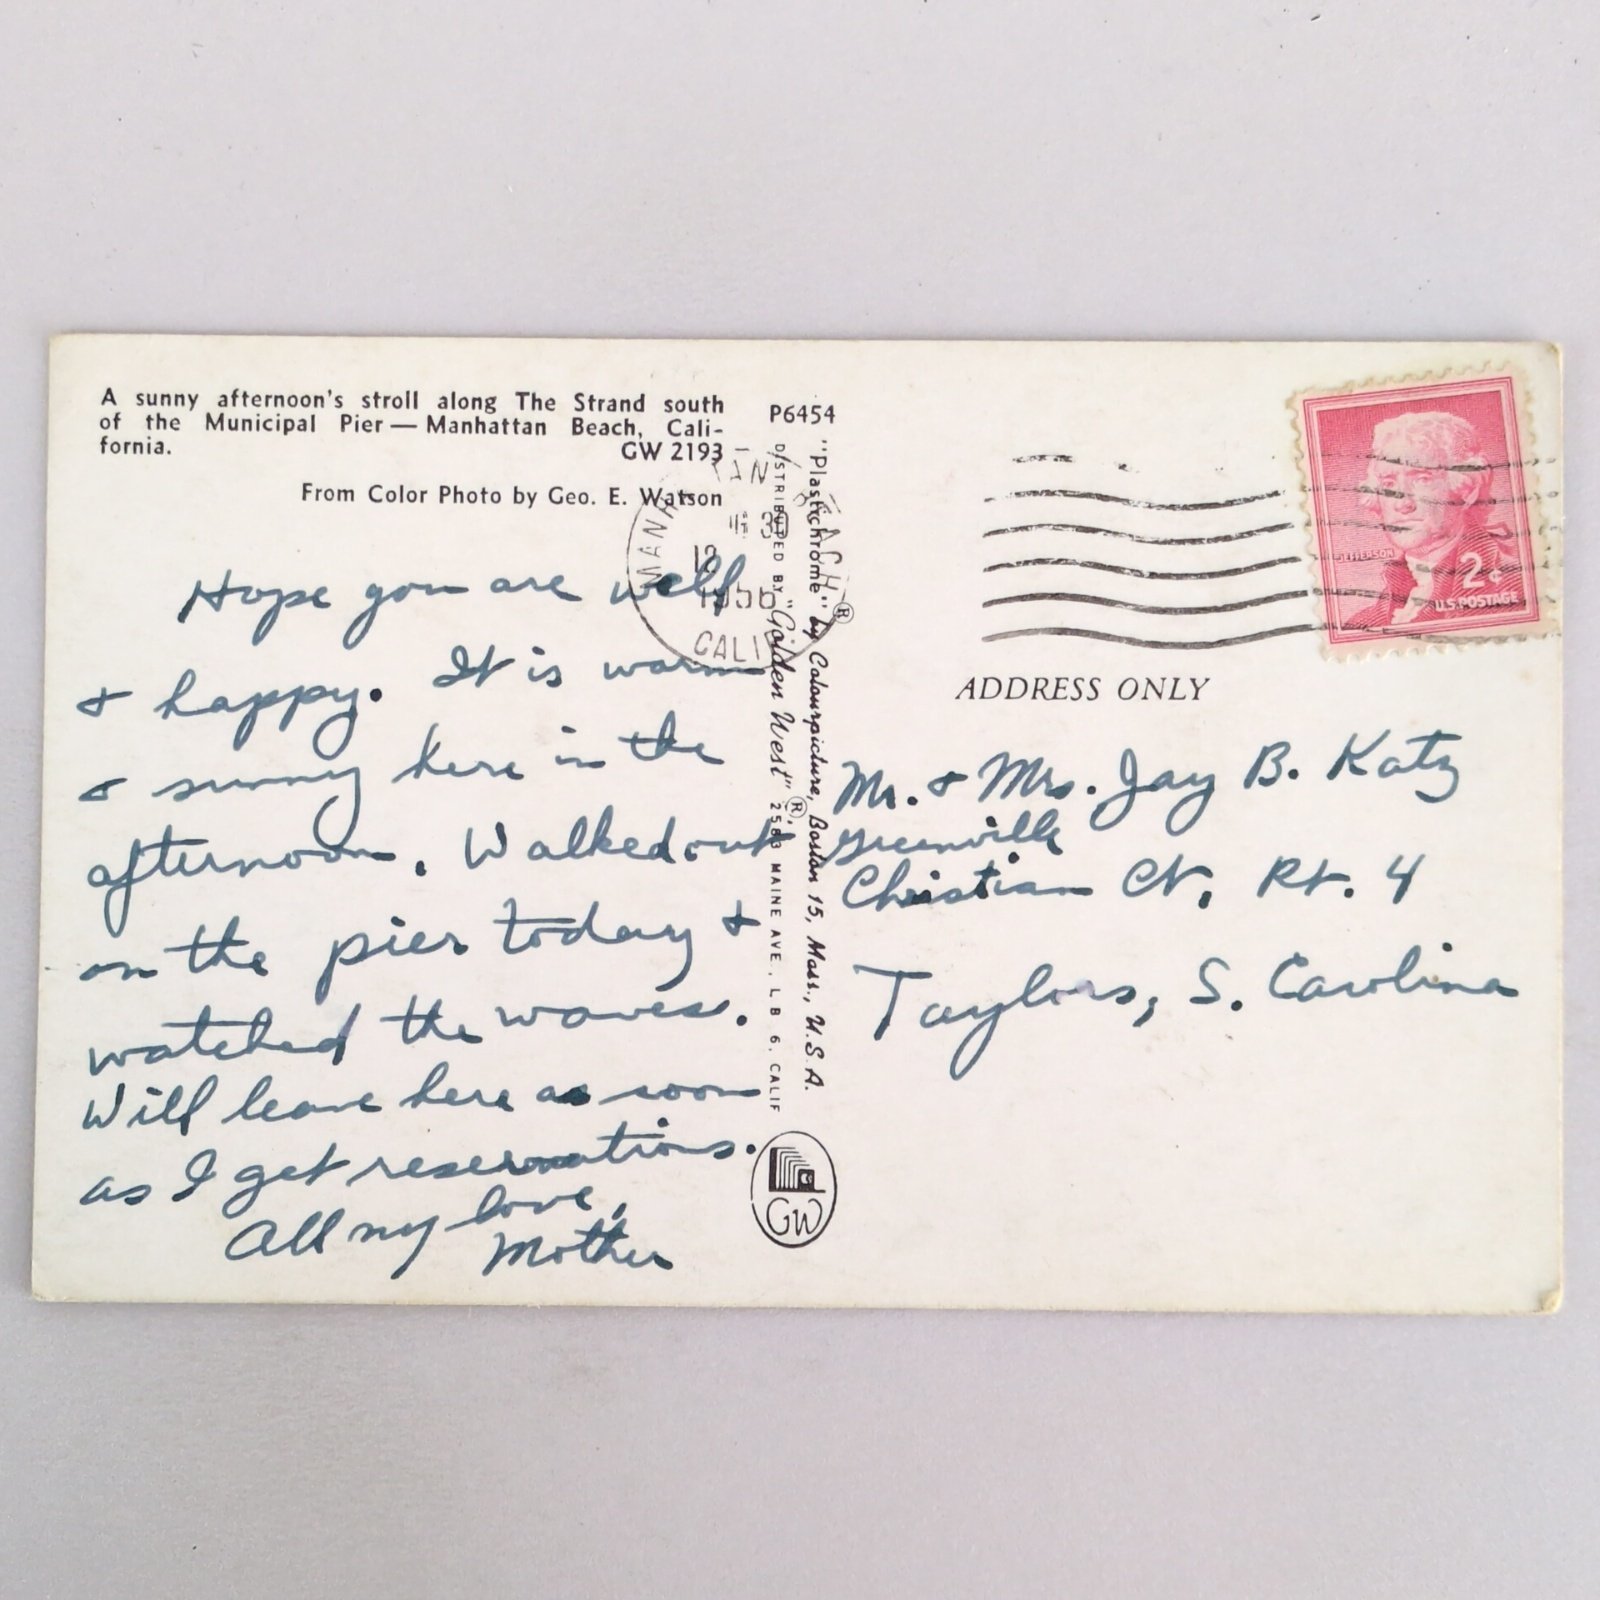 A sunny afternoon's stroll along The Strand south
of the Municipal Pier — Manhattan Beach, Cali-
fornia. GW 2193
From Color Photo by Geo. E. Watson
Hope you are well
& happy. It is warm
& sunny here in the
afternoon. Walked out
on the pier today &
watched the waves.
Will leave here as soon
as I get reservations.
All my love,
Mother
P6454
"Plastichrome" ® by Colourpicture, Boston 15, Mass., U.S.A.
DISTRIBUTED BY "Golden West" ®, MAINE AVE., L B 6, CALIF
GW
CALIF
1956
JEFFERSON
2¢
U.S. POSTAGE
ADDRESS ONLY
Mr. & Mrs. Jay B. Katz
Greenville
Christian Ct, Rt. 4
Taylors, S. Carolina